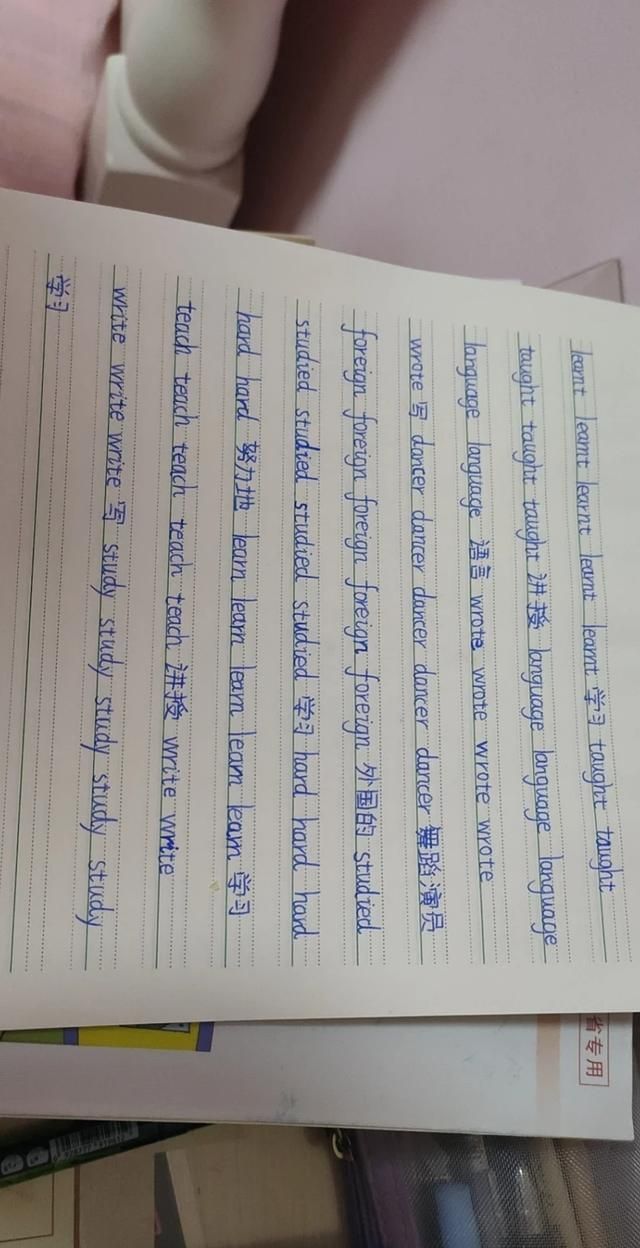 learnt learnt learnt learnt learnt 学习 taught taught
taught taught taught 讲授 language language language
language language 语言 wrote wrote wrote wrote
wrote 写 dancer dancer dancer dancer dancer 舞蹈演员
foreign foreign foreign foreign foreign 外国的 studied
studied studied studied studied 学习 hard hard hard
hard hard 努力地 learn learn learn learn learn 学习
teach teach teach teach teach 讲授 write write
write write write 写 study study study study study
学习
省专用